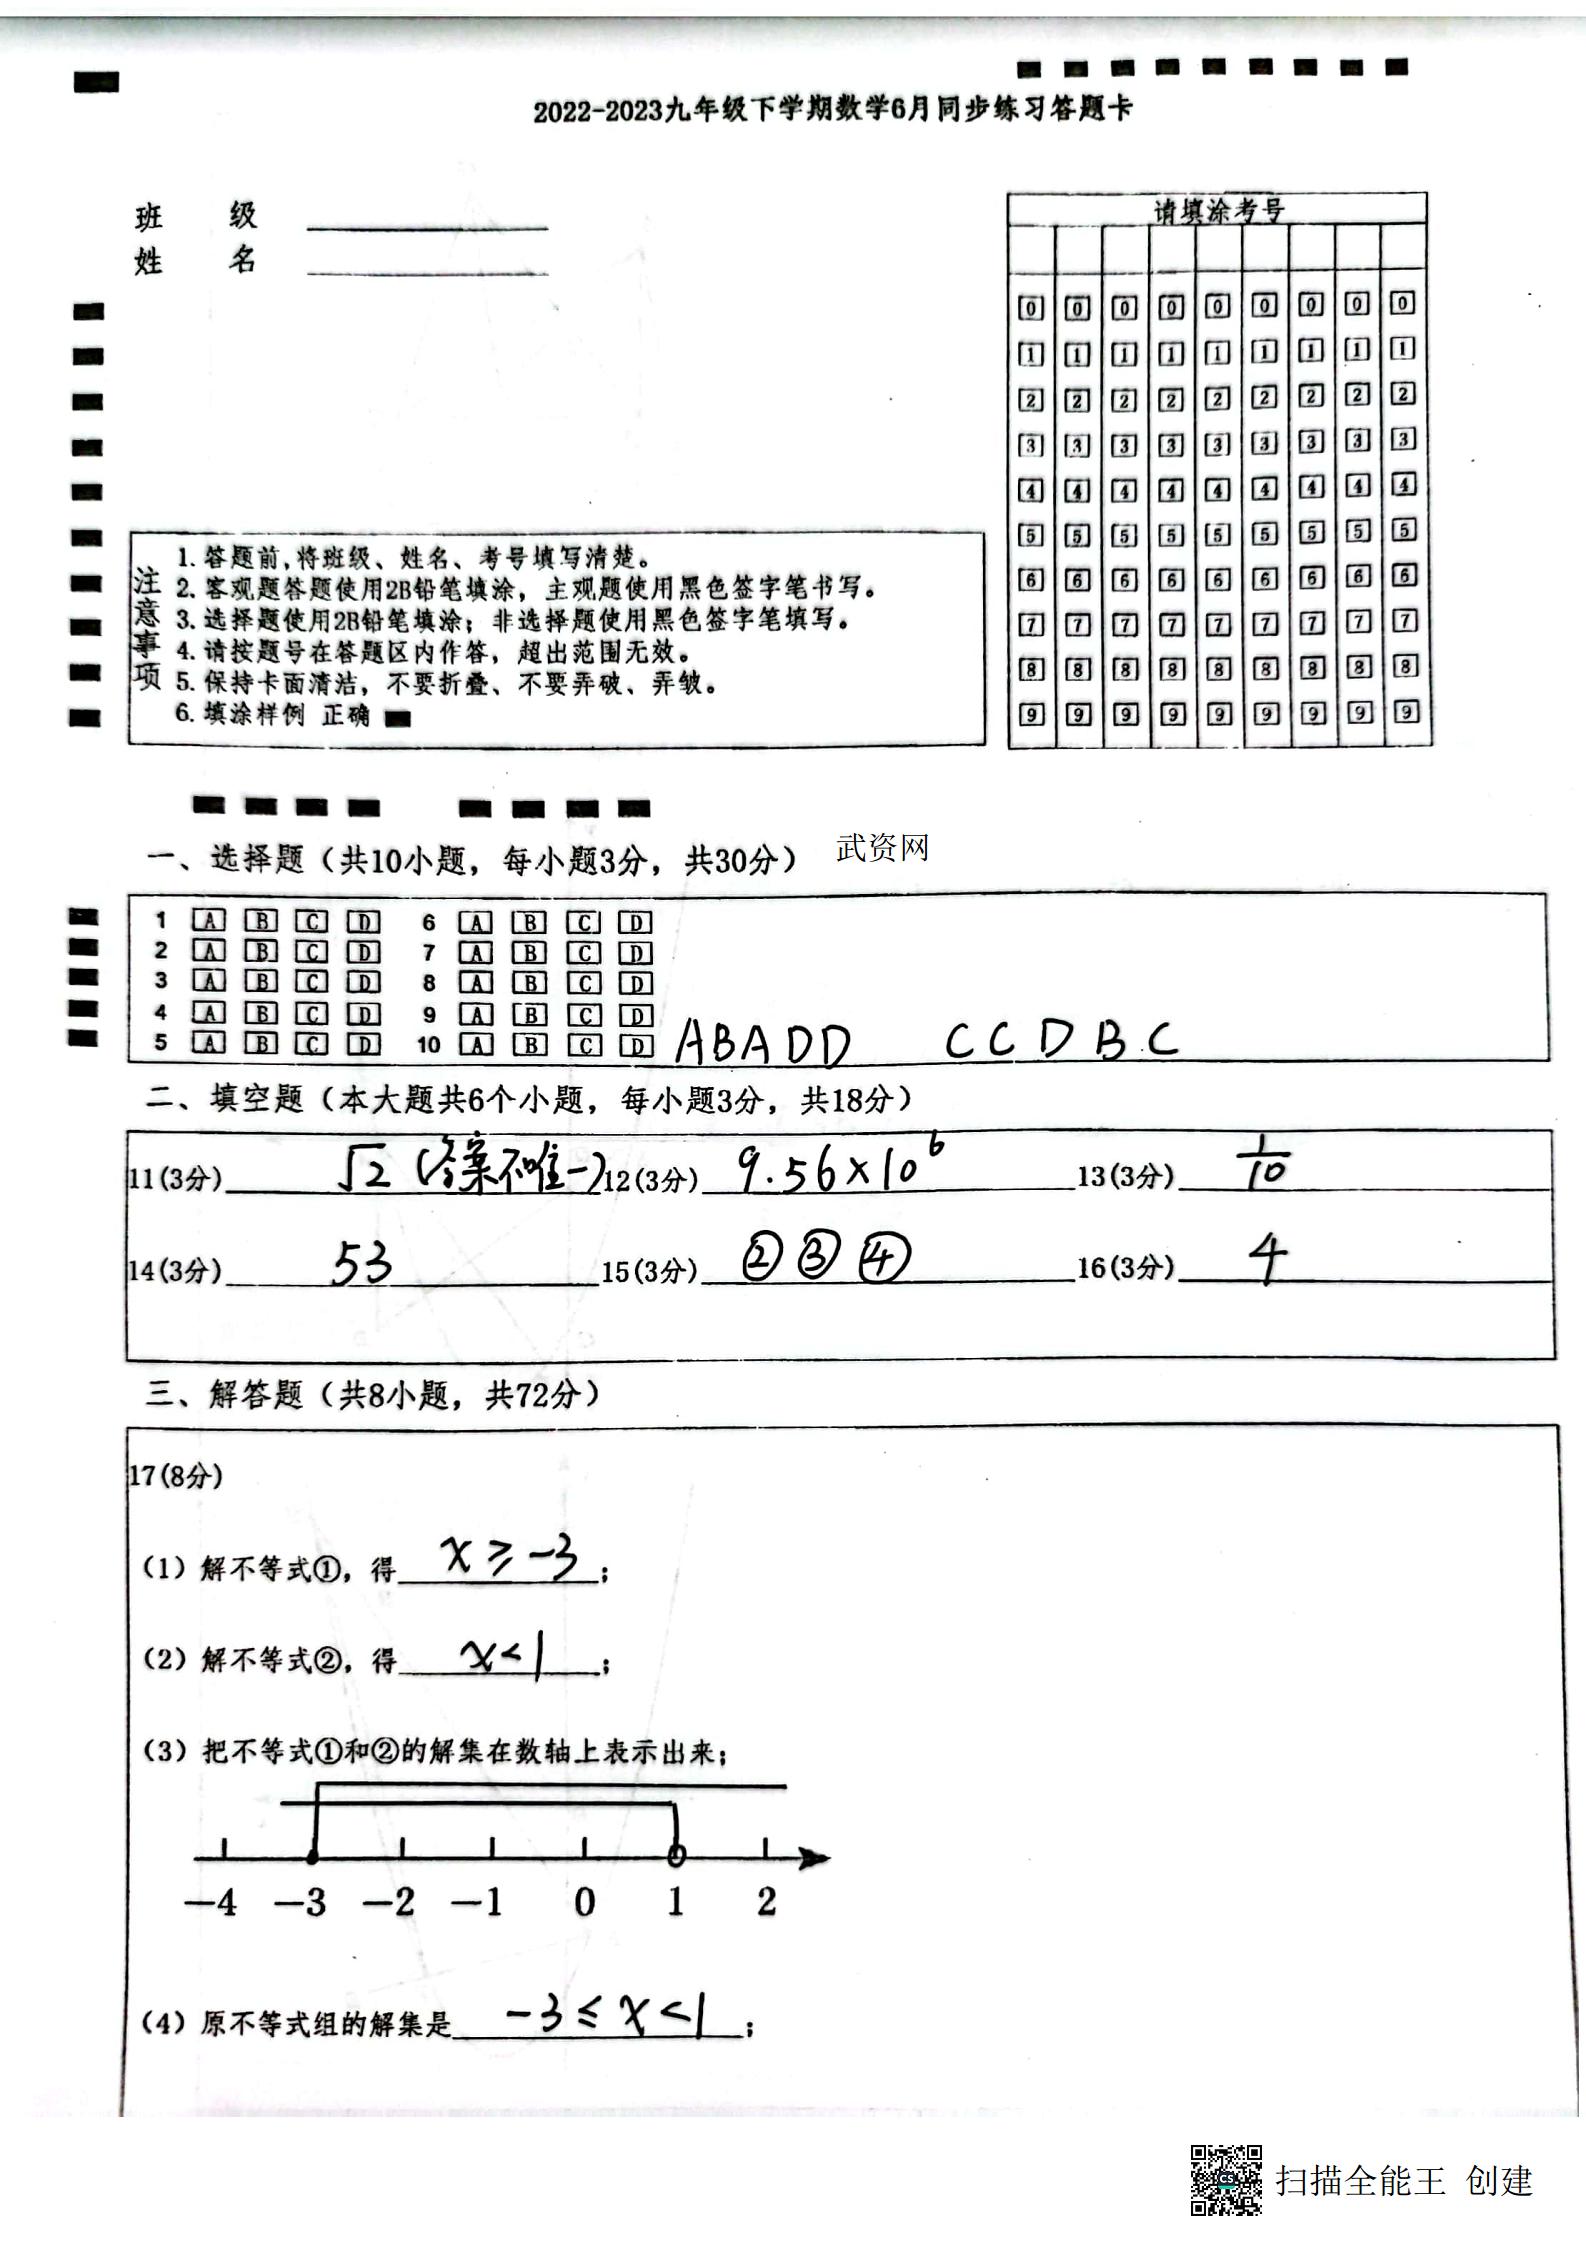 2022-2023九年级下学期数学6月同步练习答题卡
班 级
姓 名
请填涂考号
0 0 0 0 0 0 0 0 0
1 1 1 1 1 1 1 1 1
2 2 2 2 2 2 2 2 2
3 3 3 3 3 3 3 3 3
4 4 4 4 4 4 4 4 4
5 5 5 5 5 5 5 5 5
6 6 6 6 6 6 6 6 6
7 7 7 7 7 7 7 7 7
8 8 8 8 8 8 8 8 8
9 9 9 9 9 9 9 9 9
注意事项
1. 答题前,将班级、姓名、考号填写清楚。
2. 客观题答题使用2B铅笔填涂，主观题使用黑色签字笔书写。
3. 选择题使用2B铅笔填涂；非选择题使用黑色签字笔填写。
4. 请按题号在答题区内作答，超出范围无效。
5. 保持卡面清洁，不要折叠、不要弄破、弄皱。
6. 填涂样例 正确
一、选择题（共10小题，每小题3分，共30分）
武资网
1 A B C D 6 A B C D
2 A B C D 7 A B C D
3 A B C D 8 A B C D
4 A B C D 9 A B C D
5 A B C D 10 A B C D ABADD CCDBC
二、填空题（本大题共6个小题，每小题3分，共18分）
11(3分) √2 (答案不唯一) 12(3分) 9.56×10⁶ 13(3分) 1/10
14(3分) 53 15(3分) ②③④ 16(3分) 4
三、解答题（共8小题，共72分）
17(8分)
（1）解不等式①，得 x≥-3；
（2）解不等式②，得 x<1；
（3）把不等式①和②的解集在数轴上表示出来；
-4 -3 -2 -1 0 1 2
（4）原不等式组的解集是 -3≤x<1；
扫描全能王 创建